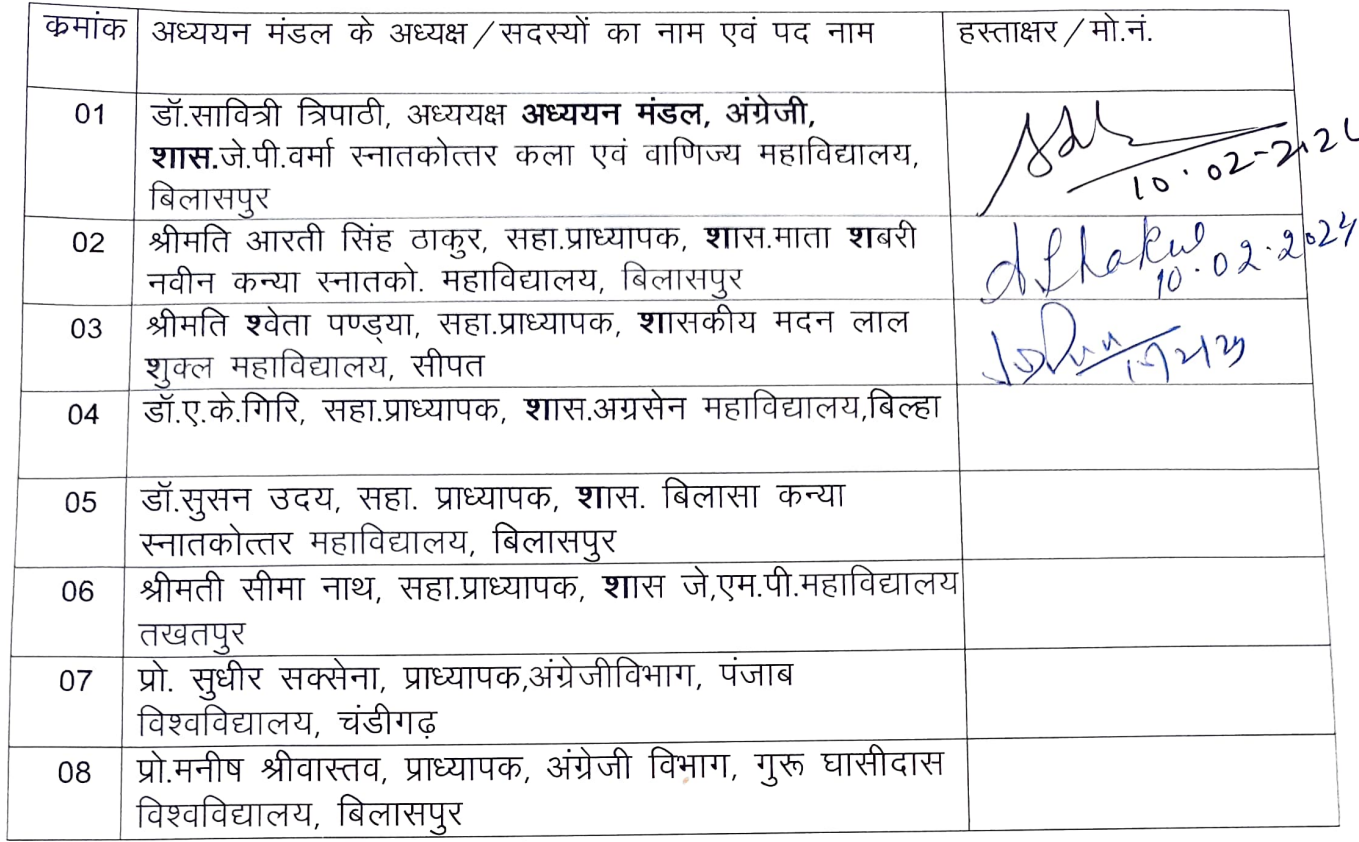 क्रमांक अध्ययन मंडल के अध्यक्ष/सदस्यों का नाम एवं पद नाम हस्ताक्षर/मो.नं.
01 डॉ.सावित्री त्रिपाठी, अध्ययक्ष अध्ययन मंडल, अंग्रेजी,
शास.जे.पी.वर्मा स्नातकोत्तर कला एवं वाणिज्य महाविद्यालय,
बिलासपुर
10.02-2024
02 श्रीमति आरती सिंह ठाकुर, सहा.प्राध्यापक, शास.माता शबरी
नवीन कन्या स्नातको. महाविद्यालय, बिलासपुर
10.02.2024
03 श्रीमति श्वेता पण्ड्या, सहा.प्राध्यापक, शासकीय मदन लाल
शुक्ल महाविद्यालय, सीपत
04 डॉ.ए.के.गिरि, सहा.प्राध्यापक, शास.अग्रसेन महाविद्यालय,बिल्हा
05 डॉ.सुसन उदय, सहा. प्राध्यापक, शास. बिलासा कन्या
स्नातकोत्तर महाविद्यालय, बिलासपुर
06 श्रीमती सीमा नाथ, सहा.प्राध्यापक, शास जे,एम.पी.महाविद्यालय
तखतपुर
07 प्रो. सुधीर सक्सेना, प्राध्यापक,अंग्रेजीविभाग, पंजाब
विश्वविद्यालय, चंडीगढ़
08 प्रो.मनीष श्रीवास्तव, प्राध्यापक, अंग्रेजी विभाग, गुरू घासीदास
विश्वविद्यालय, बिलासपुर